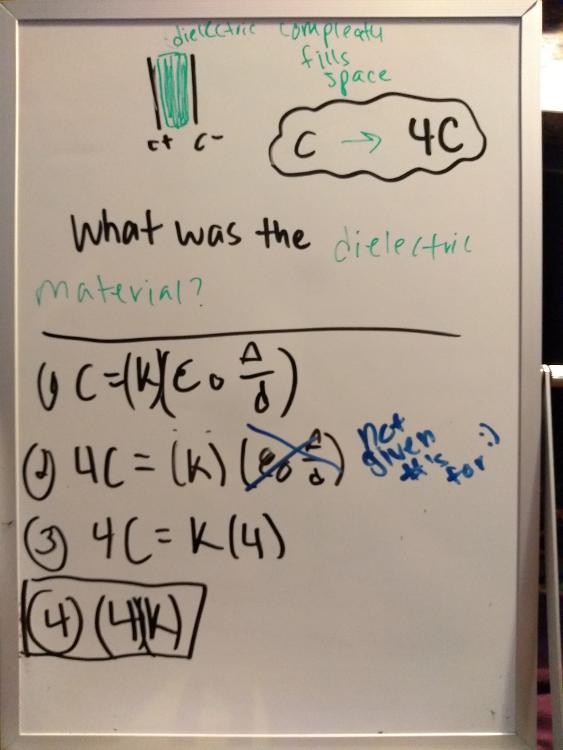 dielectric compleatly
fills
space
c+ c-
C → 4C
What was the dielectric
material?
① C=(K)(ε₀ A/d)
② 4C = (K) (ε₀ A/d) not given #'s for :)
③ 4C = K(4)
④ (4)(K)